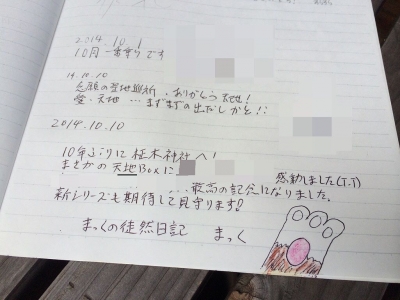 2014.10.1
10月一番乗りです
14.10.10
念願の聖地巡礼、ありがとう
愛・天地 … まず町の出だしかを!!
2014.10.10
10年ぶりに柾木神社へ!
まさかの天地Boxに
感動しました(T-T)
…最高の記念になりました。
新シリーズも期待して見守ります!
まっくの徒然日記 まっく